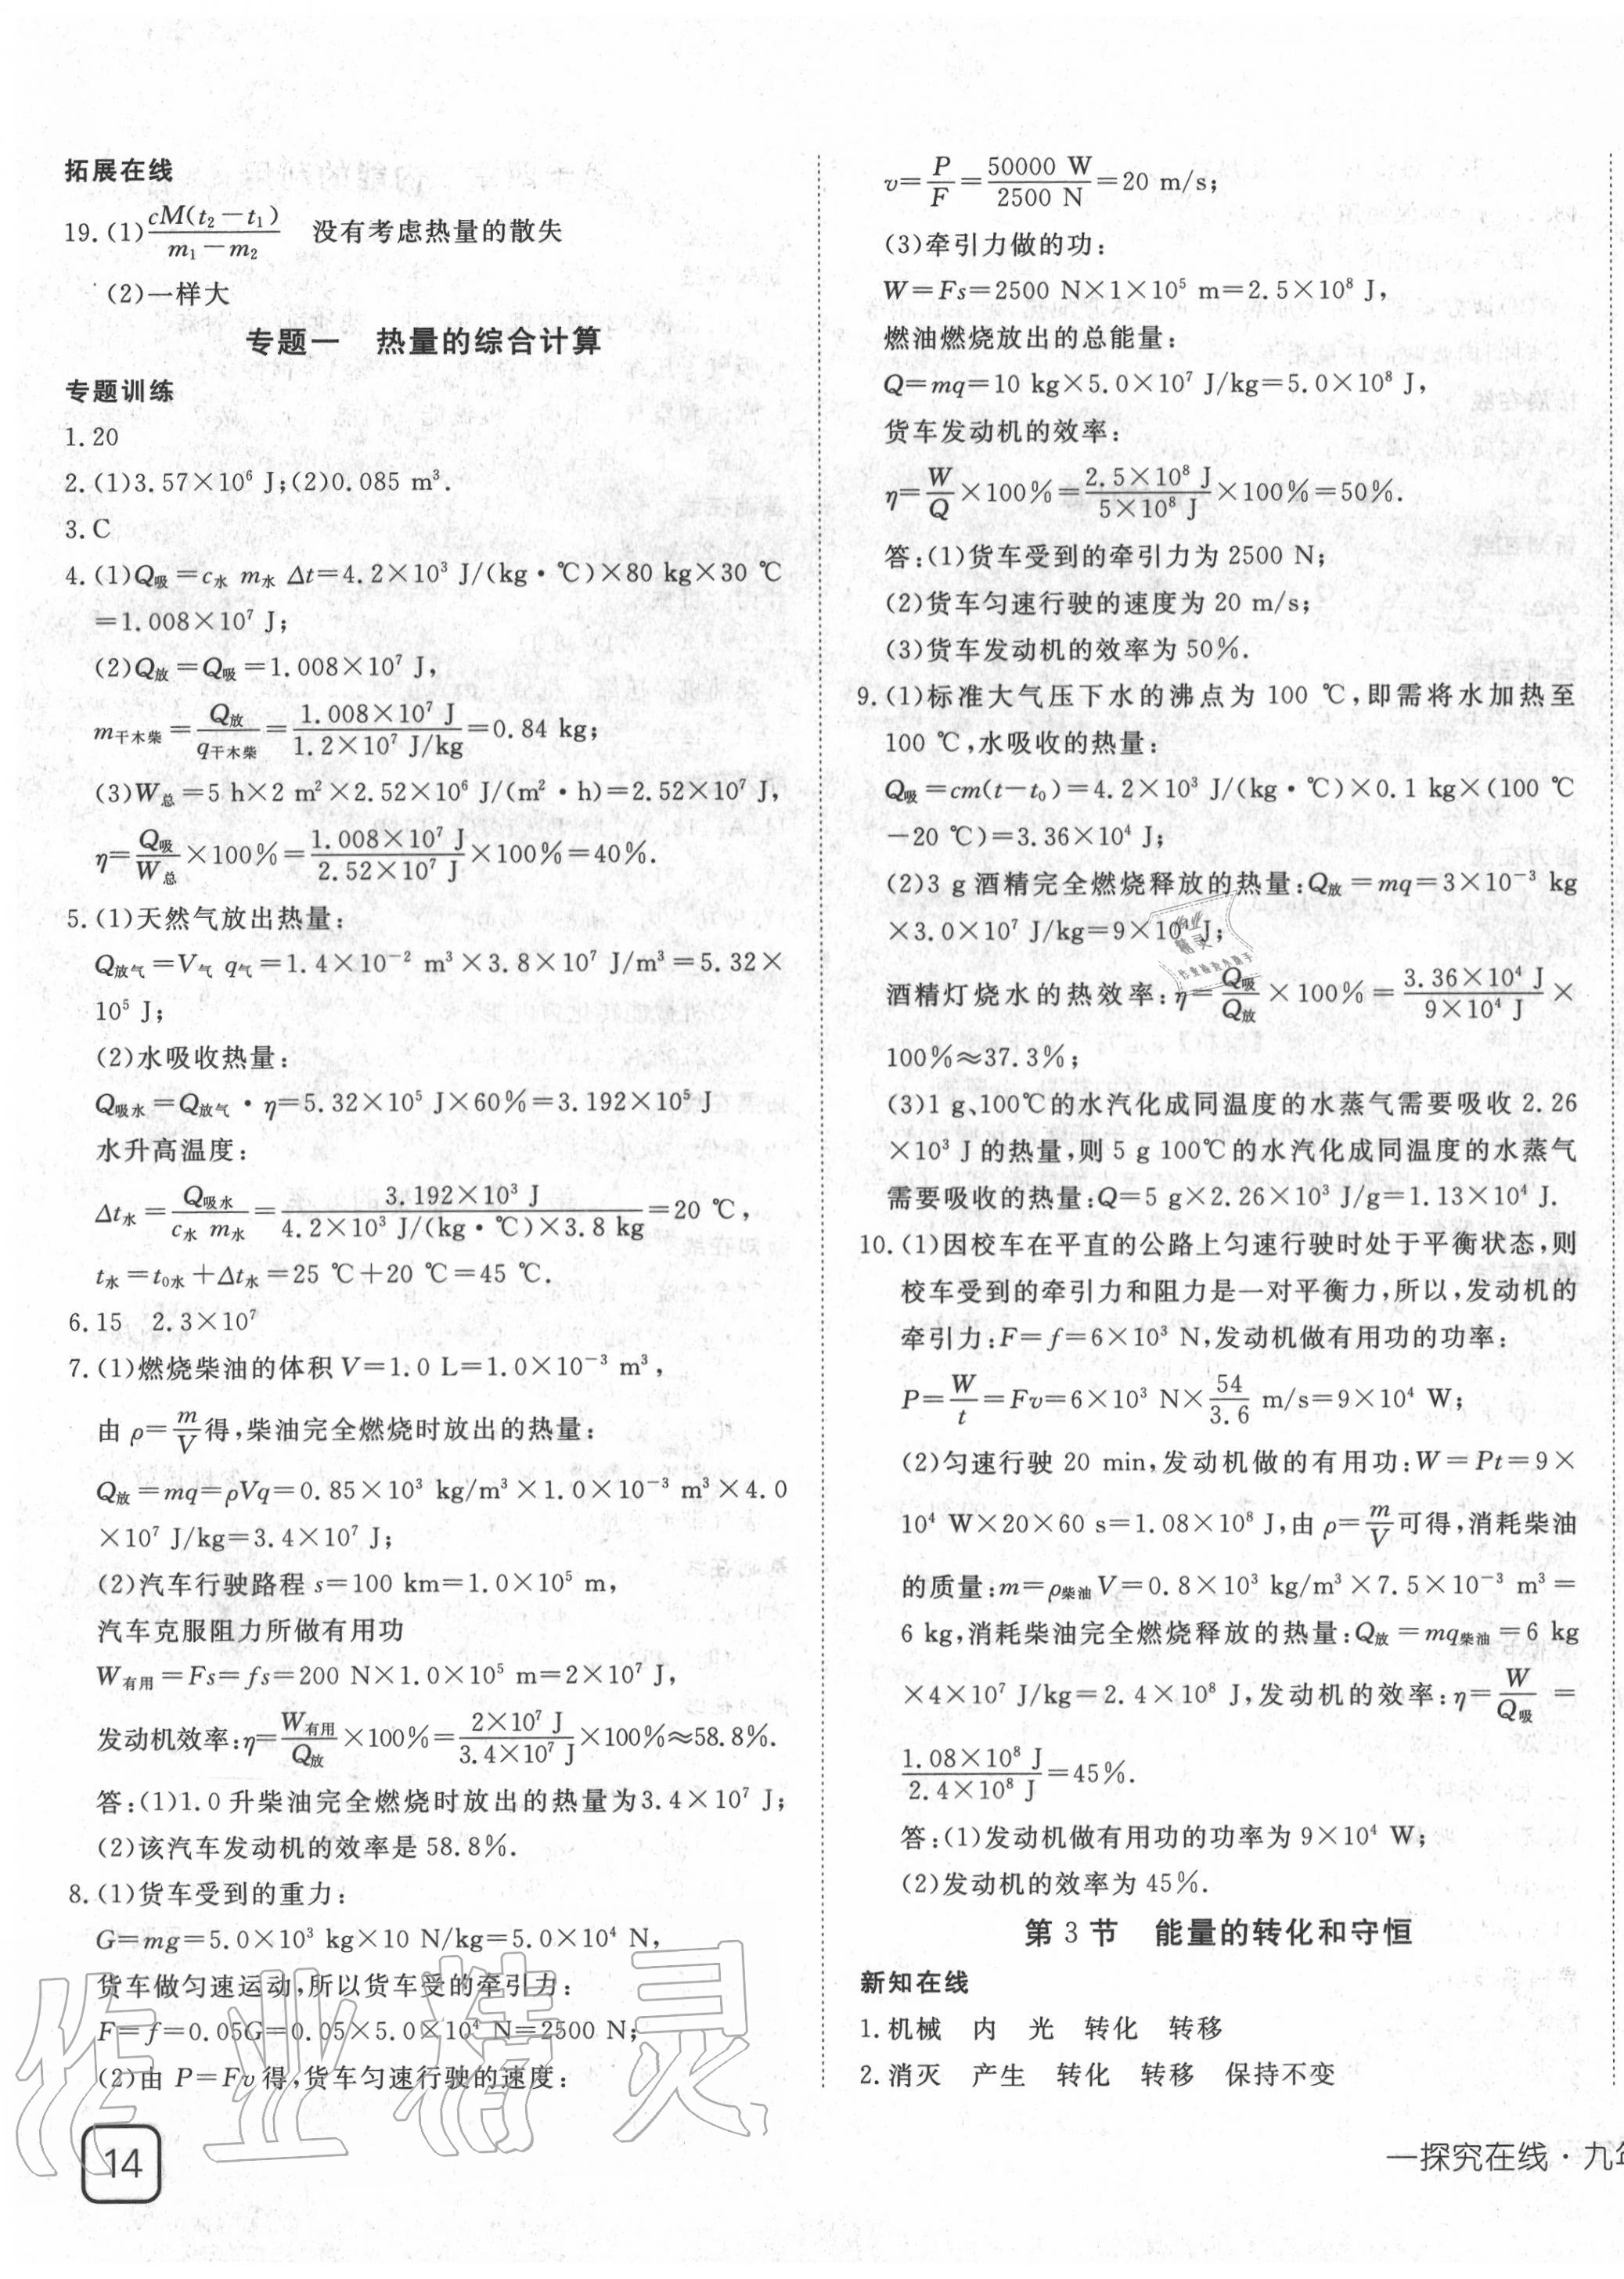 拓展在线
19.(1)cM(t₂-t₁)/(m₁-m₂) 没有考虑热量的散失
(2)一样大
专题一 热量的综合计算
专题训练
1.20
2.(1)3.57×10⁶ J;(2)0.085 m³.
3.C
4.(1)Q吸=c水 m水 Δt=4.2×10³ J/(kg·℃)×80 kg×30 ℃
=1.008×10⁷ J;
(2)Q放=Q吸=1.008×10⁷ J,
m干木柴=Q放/q干木柴=1.008×10⁷ J/1.2×10⁷ J/kg=0.84 kg;
(3)W总=5 h×2 m²×2.52×10⁶ J/(m²·h)=2.52×10⁷ J,
η=Q吸/W总×100%=1.008×10⁷ J/2.52×10⁷ J×100%=40%.
5.(1)天然气放出热量:
Q放气=V气 q气=1.4×10⁻² m³×3.8×10⁷ J/m³=5.32×
10⁵ J;
(2)水吸收热量:
Q吸水=Q放气·η=5.32×10⁵ J×60%=3.192×10⁵ J
水升高温度:
Δt水=Q吸水/c水 m水=3.192×10³ J/4.2×10³ J/(kg·℃)×3.8 kg=20 ℃,
t水=t₀水+Δt水=25 ℃+20 ℃=45 ℃.
6.15 2.3×10⁷
7.(1)燃烧柴油的体积V=1.0 L=1.0×10⁻³ m³,
由 ρ=m/V得,柴油完全燃烧时放出的热量:
Q放=mq=ρVq=0.85×10³ kg/m³×1.0×10⁻³ m³×4.0
×10⁷ J/kg=3.4×10⁷ J;
(2)汽车行驶路程 s=100 km=1.0×10⁵ m,
汽车克服阻力所做有用功
W有用=Fs=fs=200 N×1.0×10⁵ m=2×10⁷ J,
发动机效率:η=W有用/Q放×100%=2×10⁷ J/3.4×10⁷ J×100%≈58.8%.
答:(1)1.0升柴油完全燃烧时放出的热量为3.4×10⁷ J;
(2)该汽车发动机的效率是 58.8%.
8.(1)货车受到的重力:
G=mg=5.0×10³ kg×10 N/kg=5.0×10⁴ N,
货车做匀速运动,所以货车受的牵引力:
F=f=0.05G=0.05×5.0×10⁴ N=2500 N;
(2)由 P=Fv得,货车匀速行驶的速度:
14
v=P/F=50000 W/2500 N=20 m/s;
(3)牵引力做的功:
W=Fs=2500 N×1×10⁵ m=2.5×10⁸ J,
燃油燃烧放出的总能量:
Q=mq=10 kg×5.0×10⁷ J/kg=5.0×10⁸ J,
货车发动机的效率:
η=W/Q×100%=2.5×10⁸ J/5×10⁸ J×100%=50%.
答:(1)货车受到的牵引力为 2500 N;
(2)货车匀速行驶的速度为 20 m/s;
(3)货车发动机的效率为 50%.
9.(1)标准大气压下水的沸点为 100 ℃,即需将水加热至
100 ℃,水吸收的热量:
Q吸=cm(t-t₀)=4.2×10³ J/(kg·℃)×0.1 kg×(100 ℃
-20 ℃)=3.36×10⁴ J;
(2)3 g酒精完全燃烧释放的热量:Q放=mq=3×10⁻³ kg
×3.0×10⁷ J/kg=9×10⁴ J;
酒精灯烧水的热效率:η=Q吸/Q放×100%=3.36×10⁴ J/9×10⁴ J×
100%≈37.3%;
(3)1 g、100℃的水汽化成同温度的水蒸气需要吸收 2.26
×10³ J的热量,则 5 g 100℃的水汽化成同温度的水蒸气
需要吸收的热量:Q=5 g×2.26×10³ J/g=1.13×10⁴ J.
10.(1)因校车在平直的公路上匀速行驶时处于平衡状态,则
校车受到的牵引力和阻力是一对平衡力,所以,发动机的
牵引力:F=f=6×10³ N,发动机做有用功的功率:
P=W/t=Fv=6×10³ N×54/3.6 m/s=9×10⁴ W;
(2)匀速行驶 20 min,发动机做的有用功:W=Pt=9×
10⁴ W×20×60 s=1.08×10⁸ J,由 ρ=m/V可得,消耗柴油
的质量:m=ρ柴油V=0.8×10³ kg/m³×7.5×10⁻³ m³=
6 kg,消耗柴油完全燃烧释放的热量:Q放=mq柴油=6 kg
×4×10⁷ J/kg=2.4×10⁸ J,发动机的效率:η=W/Q吸=
1.08×10⁸ J/2.4×10⁸ J=45%.
答:(1)发动机做有用功的功率为 9×10⁴ W;
(2)发动机的效率为 45%.
第 3 节 能量的转化和守恒
新知在线
1.机械 内 光 转化 转移
2.消灭 产生 转化 转移 保持不变
一探究在线·九
作业精灵